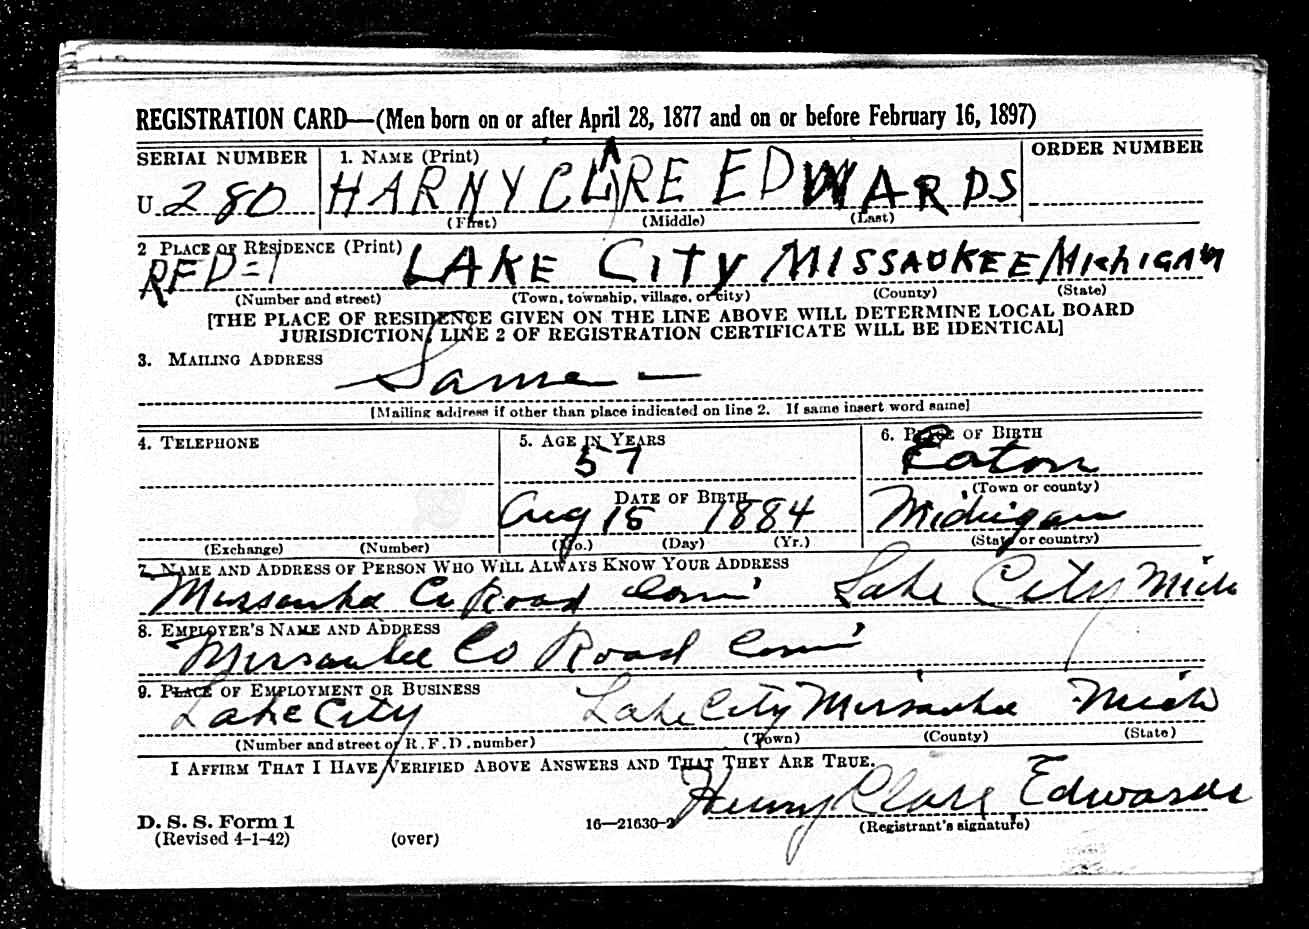 REGISTRATION CARD—(Men born on or after April 28, 1877 and on or before February 16, 1897)
SERIAL NUMBER 1. NAME (Print) ORDER NUMBER
U 280 HARNY CLARE EDWARDS
(First) (Middle) (Last)
2 PLACE OF RESIDENCE (Print)
RFD-1 LAKE CITY MISSAUKEE MICHIGAN
(Number and street) (Town, township, village, or city) (County) (State)
[THE PLACE OF RESIDENCE GIVEN ON THE LINE ABOVE WILL DETERMINE LOCAL BOARD
JURISDICTION; LINE 2 OF REGISTRATION CERTIFICATE WILL BE IDENTICAL]
3. MAILING ADDRESS
Same —
[Mailing address if other than place indicated on line 2. If same insert word same]
4. TELEPHONE 5. AGE IN YEARS 6. PLACE OF BIRTH
57 Eaton
DATE OF BIRTH (Town or county)
Aug 15 1884 Michigan
(Exchange) (Number) (Mo.) (Day) (Yr.) (State or country)
7. NAME AND ADDRESS OF PERSON WHO WILL ALWAYS KNOW YOUR ADDRESS
Missaukee Co Road Com' Lake City Mich
8. EMPLOYER'S NAME AND ADDRESS
Missaukee Co Road Com'
9. PLACE OF EMPLOYMENT OR BUSINESS
Lake City Lake City Missaukee Mich
(Number and street or R. F. D. number) (Town) (County) (State)
I AFFIRM THAT I HAVE VERIFIED ABOVE ANSWERS AND THAT THEY ARE TRUE.
Henry Clare Edwards
D. S. S. Form 1 16—21630-2 (Registrant's signature)
(Revised 4-1-42) (over)